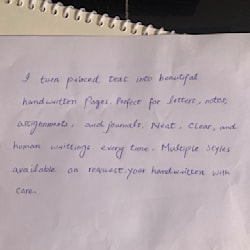 I turn printed text into beautiful
handwritten pages. Perfect for letters, notes,
assignments, and journals. Neat, clear, and
human writtings every time. Multiple styles
available on request.your handwritten with
care.